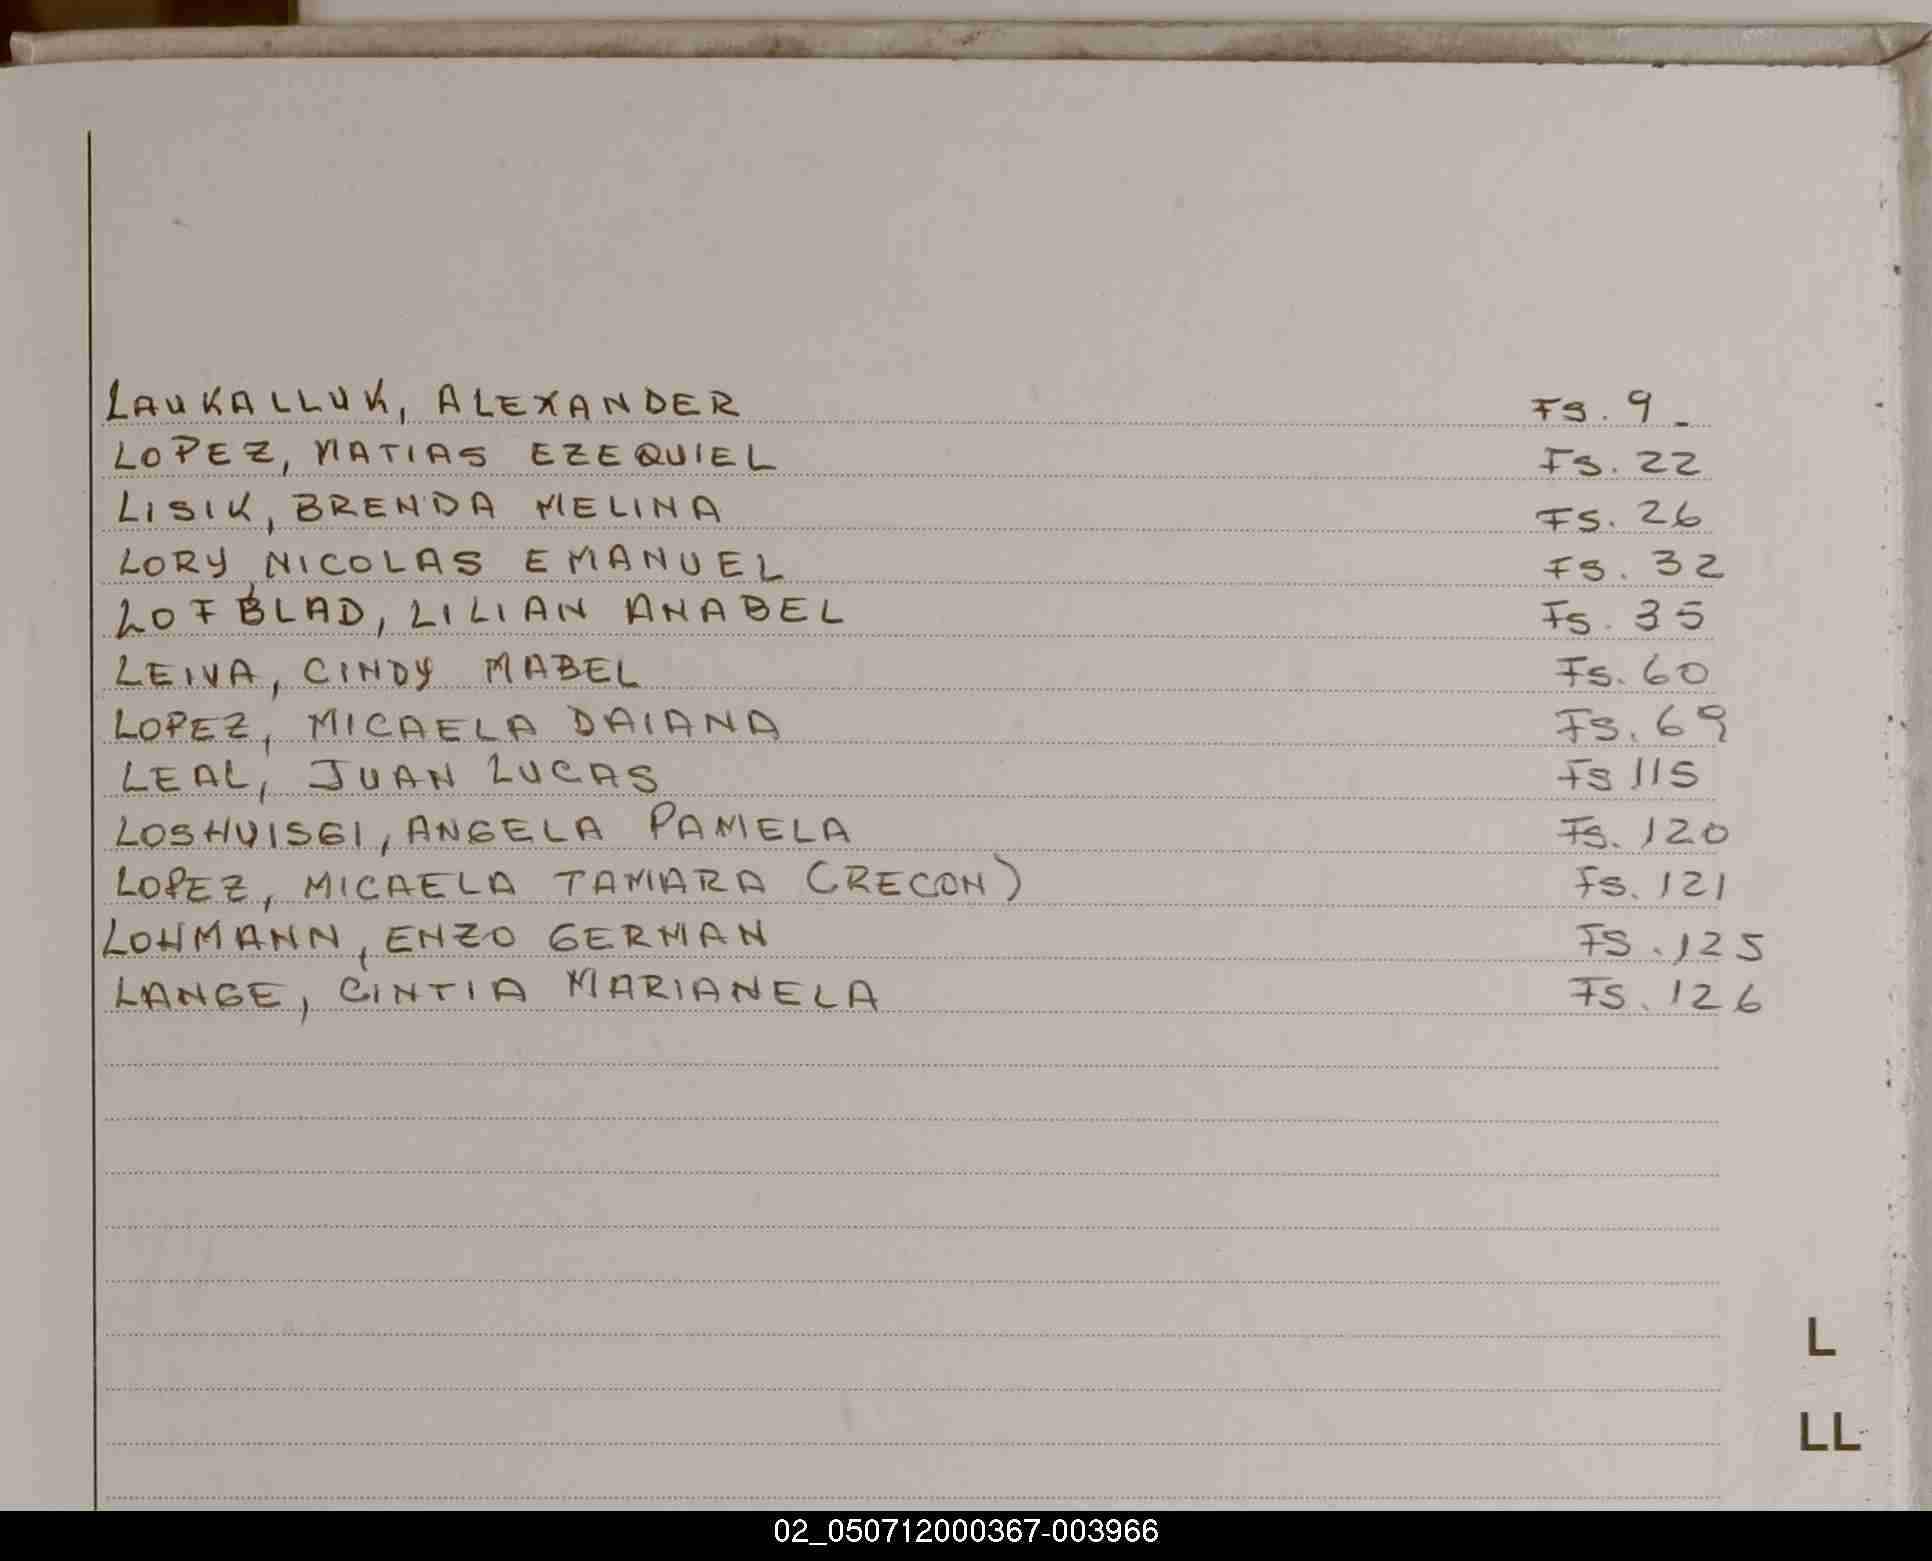 LAUKALLUK, ALEXANDER FS. 9_
LOPEZ, MATIAS EZEQUIEL FS. 22
LISIK, BRENDA MELINA FS. 26
LORY, NICOLAS EMANUEL FS. 32
LOFBLAD, LILIAN ANABEL FS. 35
LEIVA, CINDY MABEL FS. 60
LOPEZ, MICAELA DAIANA FS. 69
LEAL, JUAN LUCAS FS 115
LOSHUISGI, ANGELA PAMELA FS. 120
LOPEZ, MICAELA TAMARA (RECON) FS. 121
LOHMANN, ENZO GERMAN FS. 125
LANGE, CINTIA MARIANELA FS. 126
L
LL
02_050712000367-003966